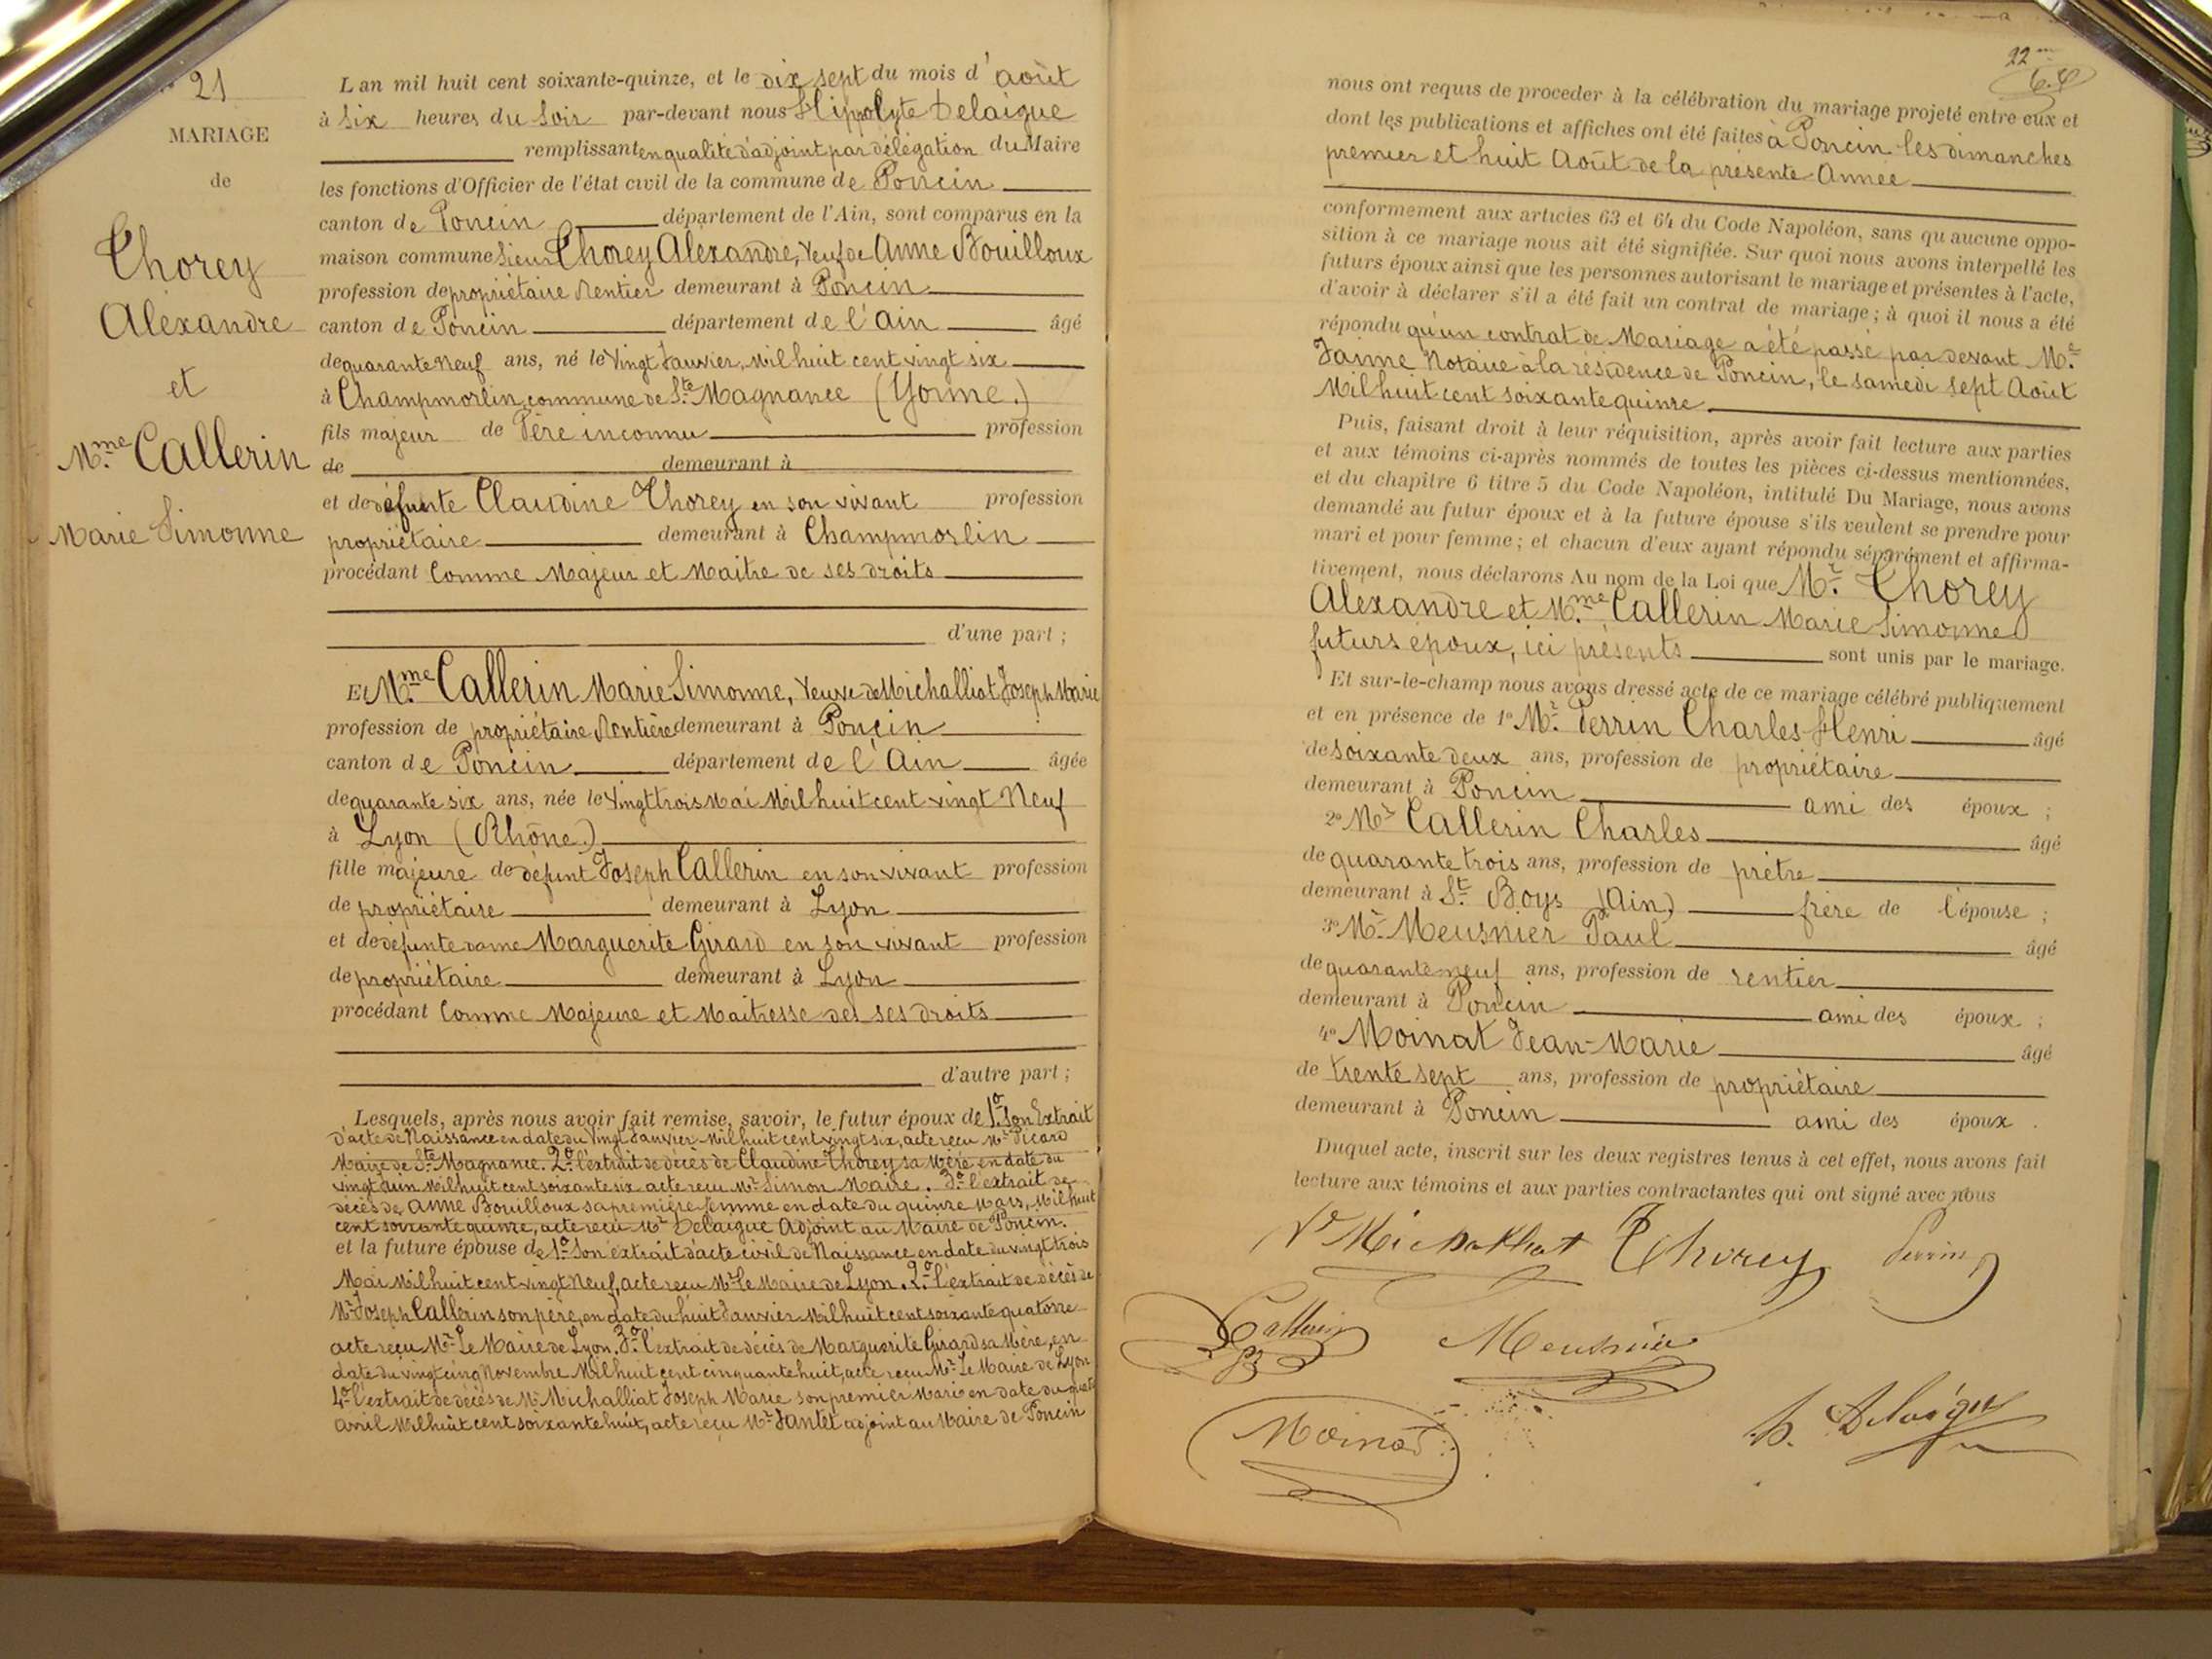 21
MARIAGE
de
Thorey
Aléxandre
et
Mme Callerin
Marie Simonne
L'an mil huit cent soixante-quinze, et le dix sept du mois d'août
à Six heures du Soir par-devant nous Hippolyte Delaigue
remplissant en qualité d'adjoint par délégation du Maire
les fonctions d'Officier de l'état civil de la commune de Poncin
canton de Poncin département de l'Ain, sont comparus en la
maison commune Sieur Thorey Aléxandre, Veuf de Anne Bouilloux
profession de propriétaire Rentier demeurant à Poncin
canton de Poncin département de l'Ain âgé
de quarante neuf ans, né le Vingt Janvier, Mil huit cent vingt six
à Champmorlin, commune de Ste Magnance (Yonne.)
fils majeur de Père inconnu profession
de demeurant à
et de défunte Claudine Thorey en son vivant profession
propriétaire demeurant à Champmorlin
procédant Comme Majeur et Maitre de ses droits
d'une part ;
Et Mme Callerin Marie Simonne, Veuve de Michalliat Joseph Marie
profession de propriétaire Rentière demeurant à Poncin
canton de Poncin département de l'Ain âgée
de quarante six ans, née le Vingt trois Mai Mil huit cent vingt Neuf
à Lyon (Rhône.)
fille majeure de défunt Joseph Callerin en son vivant profession
de propriétaire demeurant à Lyon
et de défunte dame Marguerite Girard en son vivant profession
de propriétaire demeurant à Lyon
procédant Comme Majeure et Maitresse de ses droits
d'autre part ;
Lesquels, après nous avoir fait remise, savoir, le futur époux de 1o Son Extrait
d'acte de Naissance en date du Vingt Janvier Mil huit cent vingt six, acte reçu Mr Picard
Maire de Ste Magnance. 2o l'extrait de décès de Claudine Thorey sa Mère en date du
vingt Juin Mil huit cent soixante six acte reçu Mr Simon Maire. 3o l'extrait de
décès de Anne Bouilloux sa première femme en date du quinze Mars, Mil huit
cent soixante quinze, acte reçu Mr Delaigue Adjoint au Maire de Poncin.
et la future épouse de 1o Son extrait d'acte civil de Naissance en date du vingt trois
Mai Mil huit cent vingt Neuf, acte reçu Mr le Maire de Lyon. 2o l'extrait de décès de
Mr Joseph Callerin son père, en date du huit Janvier Mil huit cent soixante quatorze
acte reçu Mr Le Maire de Lyon. 3o l'extrait de décès de Marguerite Girard sa Mère, en
date du vingt cinq Novembre Mil huit cent cinquante huit, acte reçu Mr Le Maire de Lyon
4o l'extrait de décès de Mr Michalliat Joseph Marie son premier Mari en date du quatre
avril Mil huit cent soixante huit, acte reçu Mr Jantet adjoint au Maire de Poncin
22
nous ont requis de proceder à la célébration du mariage projeté entre eux et
dont les publications et affiches ont été faites à Poncin les dimanches
premier et huit Août de la présente Année
conformement aux articles 63 et 64 du Code Napoléon, sans qu'aucune oppo-
sition à ce mariage nous ait été signifiée. Sur quoi nous avons interpellé les
futurs époux ainsi que les personnes autorisant le mariage et présentes à l'acte,
d'avoir à déclarer s'il a été fait un contrat de mariage ; à quoi il nous a été
répondu qu'un contrat de Mariage a été passé par devant Me
Jaime Notaire à la résidence de Poncin, le samedi sept Août
Mil huit cent soixante quinze
Puis, faisant droit à leur réquisition, après avoir fait lecture aux parties
et aux témoins ci-après nommés de toutes les pièces ci-dessus mentionnées,
et du chapitre 6 titre 5 du Code Napoléon, intitulé Du Mariage, nous avons
demandé au futur époux et à la future épouse s'ils veulent se prendre pour
mari et pour femme ; et chacun d'eux ayant répondu séparément et affirma-
tivement, nous déclarons Au nom de la Loi que Mr Thorey
Aléxandre et Mme Callerin Marie Simonne
futurs époux, ici présents sont unis par le mariage.
Et sur-le-champ nous avons dressé acte de ce mariage célébré publiquement
et en présence de 1o Mr Perrin Charles Henri âgé
de soixante deux ans, profession de propriétaire
demeurant à Poncin ami des époux ;
2o Mr Callerin Charles âgé
de quarante trois ans, profession de prêtre
demeurant à St Boys (Ain) frère de l'épouse ;
3o Mr Meusnier Paul âgé
de quarante neuf ans, profession de rentier
demeurant à Poncin ami des époux ;
4o Moinat Jean-Marie âgé
de trente sept ans, profession de propriétaire
demeurant à Poncin ami des époux .
Duquel acte, inscrit sur les deux registres tenus à cet effet, nous avons fait
lecture aux témoins et aux parties contractantes qui ont signé avec nous
Ve Michalliat Thorey Perrin
Callerin Meusnier
Moinat h. Delaigue